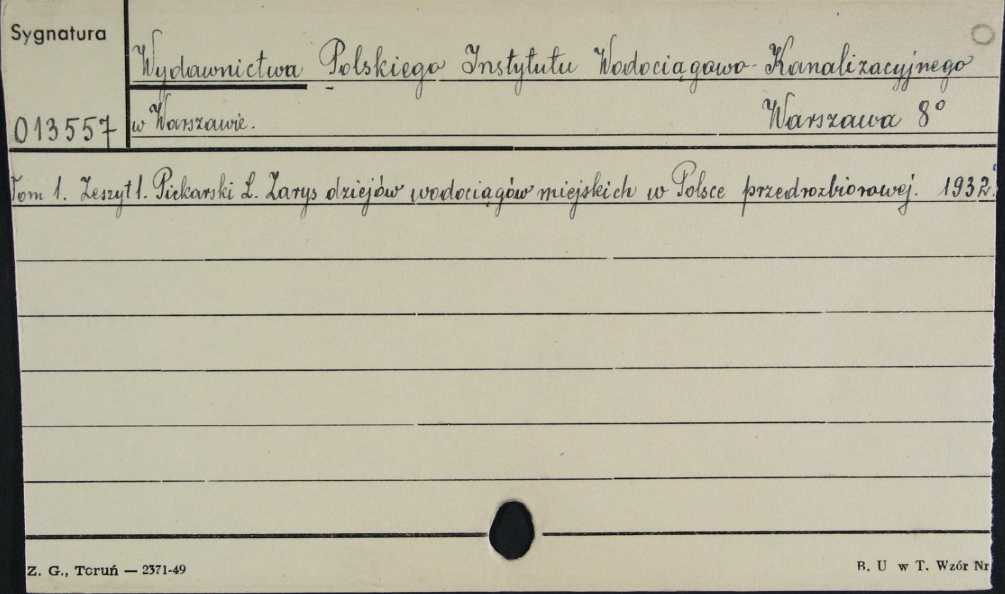 Sygnatura
Wydawnictwa Polskiego Instytutu Wodociągowo-Kanalizacyjnego
013557 w Warszawie. Warszawa 8°
Tom 1. Zeszyt 1. Piekarski L. Zarys dziejów wodociągów miejskich w Polsce przedrozbiorowej. 1932.
Z. G., Toruń — 2371-49 B. U w T. Wzór Nr